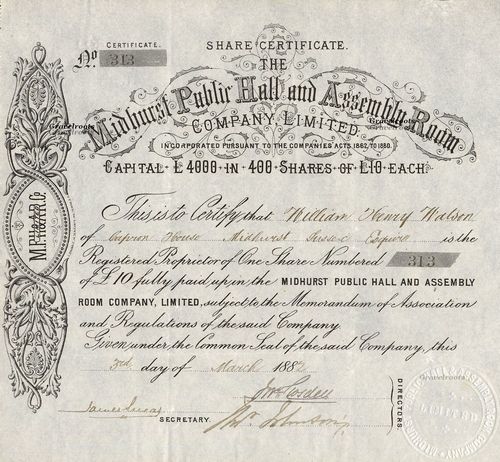 CERTIFICATE.
No 313
SHARE CERTIFICATE.
THE
Midhurst Public Hall and Assembly Room
COMPANY, LIMITED.
INCORPORATED PURSUANT TO THE COMPANIES ACTS 1862, TO 1880.
CAPITAL £4000 IN 400 SHARES OF £10 EACH.
This is to Certify that William Henry Watson
of House Midhurst Sussex Esquire is the
Registered Proprietor of One Share Numbered 313
of £10 fully paid up, in the MIDHURST PUBLIC HALL AND ASSEMBLY
ROOM COMPANY, LIMITED, subject to the Memorandum of Association
and Regulations of the said Company.
Given under the Common Seal of the said Company, this
3rd day of March 1882
DIRECTORS.
SECRETARY.
Johnson
Gravelroots
Gravelroots
Gravelroots
LIMITED